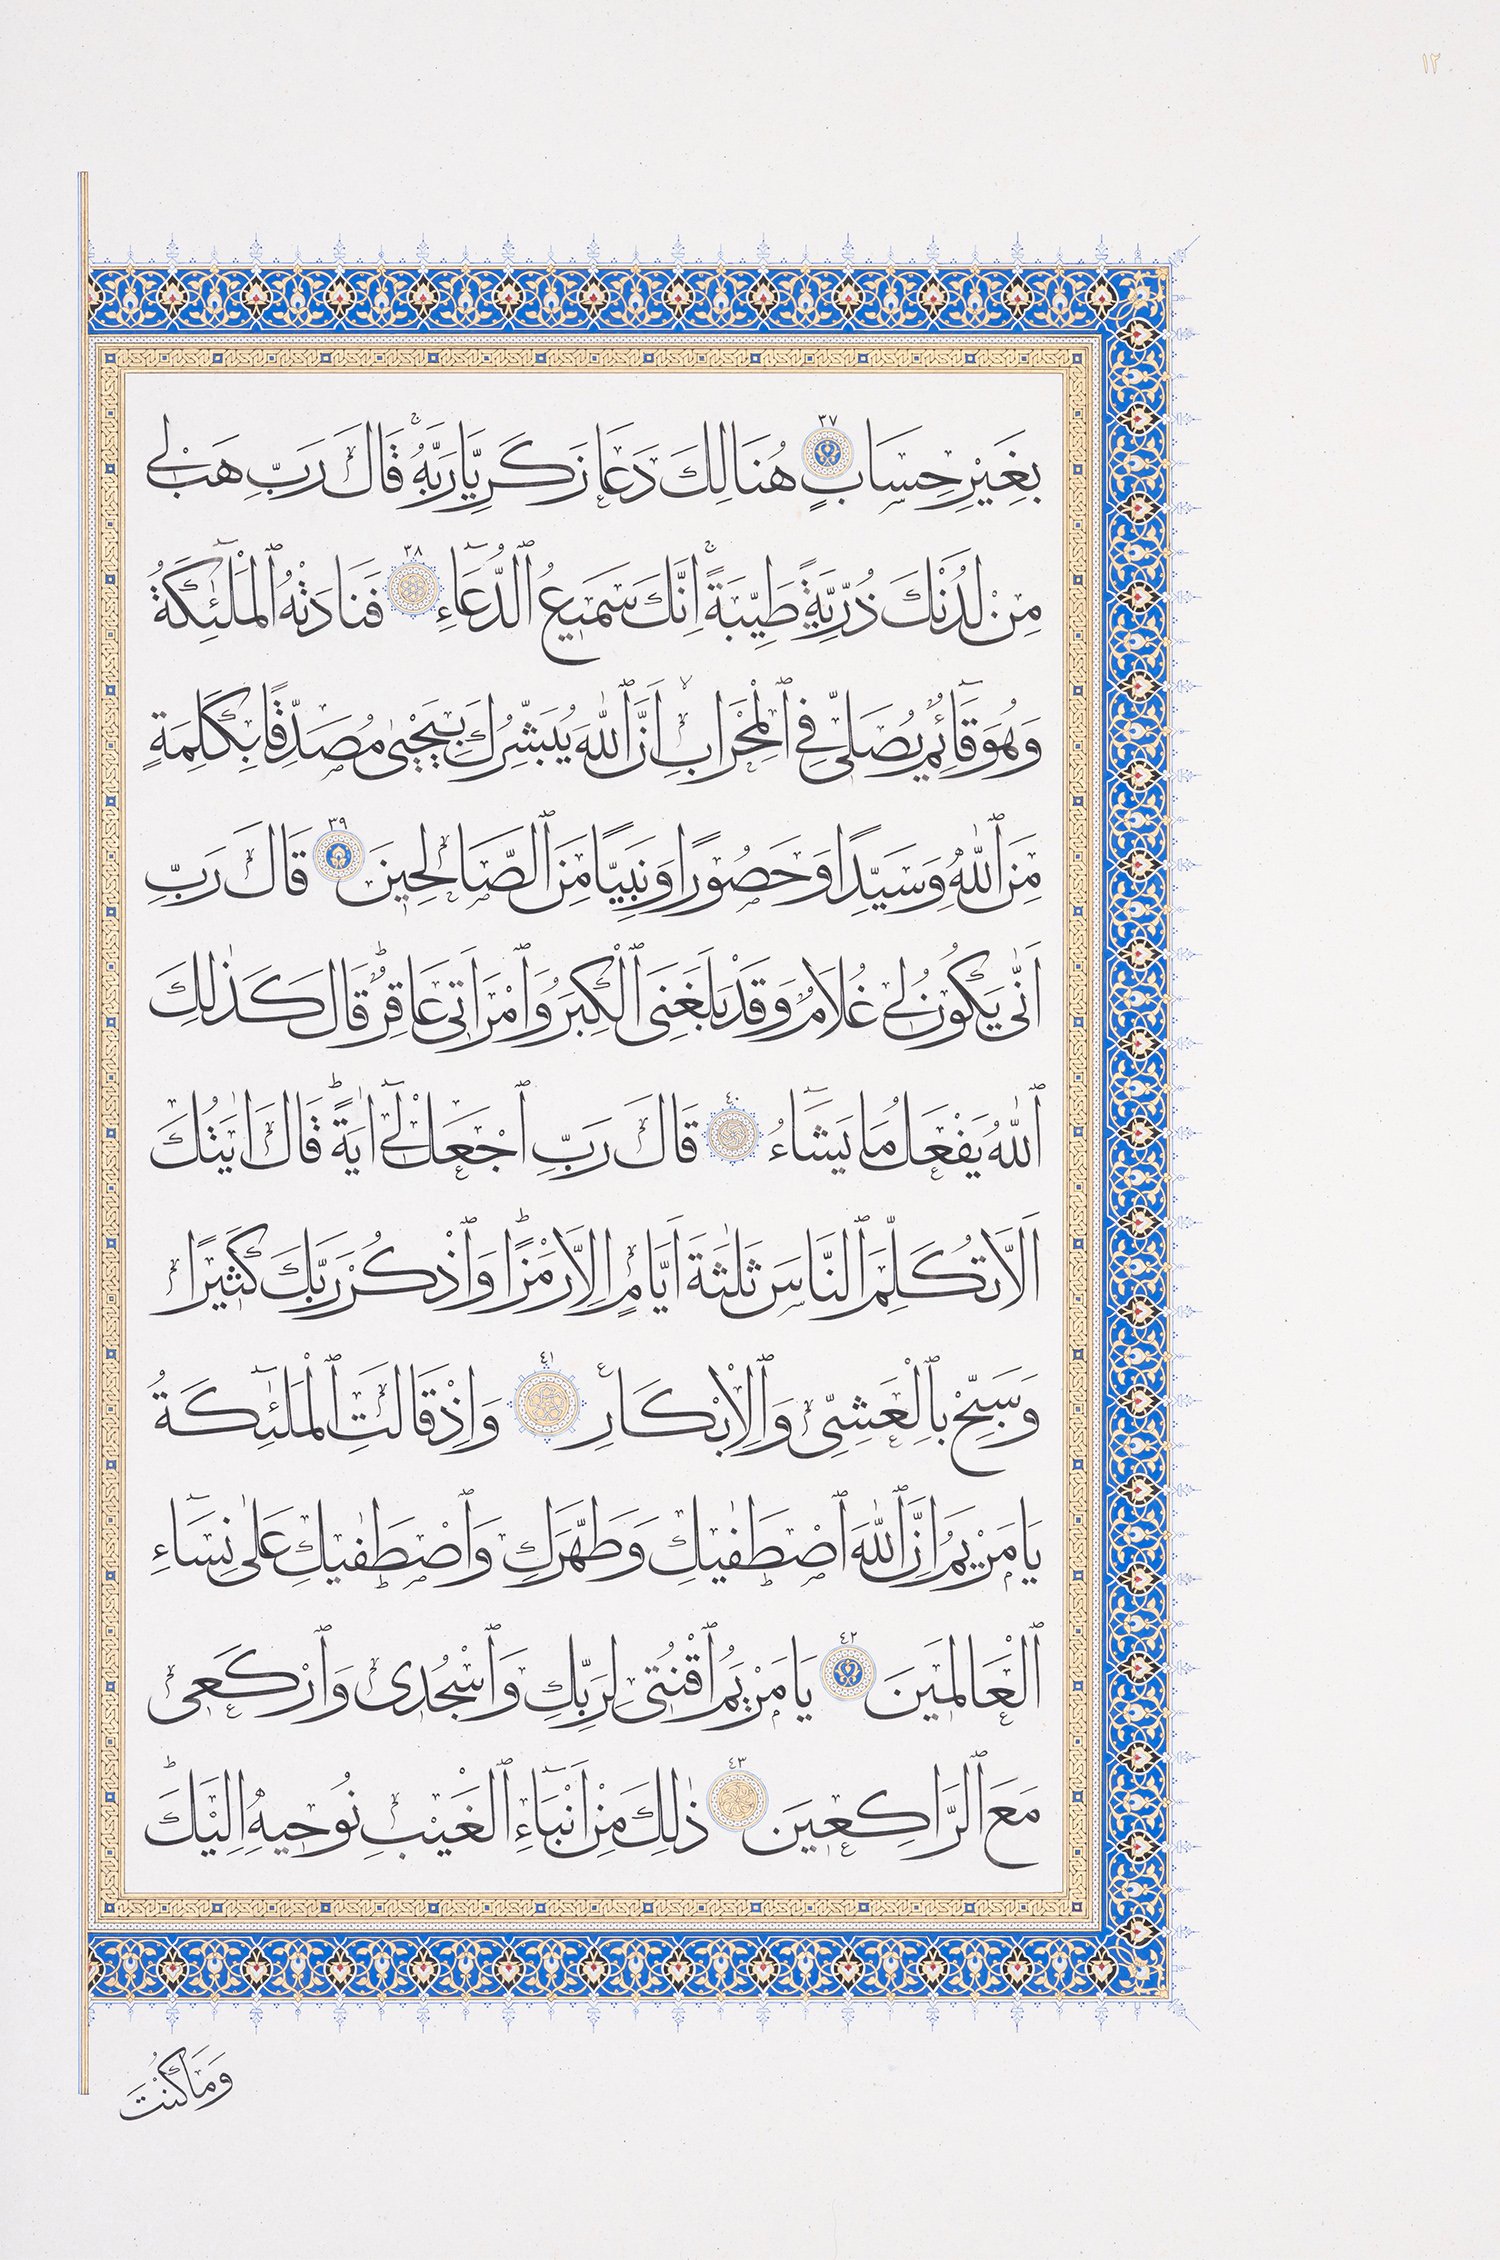 ١٢
بِغَيْرِ حِسَابٍ ٣٧ هُنَالِكَ دَعَا زَكَرِيَّا رَبَّهُۚ قَالَ رَبِّ هَبْ لٖي
مِنْ لَدُنْكَ ذُرِّيَّةً طَيِّبَةًۚ اِنَّكَ سَمٖيعُ ٱلدُّعَٓاءِ ٣٨ فَنَادَتْهُ ٱلْمَلٰٓئِكَةُ
وَهُوَ قَٓائِمٌ يُصَلّٖي فِي ٱلْمِحْرَابِۙ اَنَّ ٱللّٰهَ يُبَشِّرُكَ بِيَحْيٰى مُصَدِّقًا بِكَلِمَةٍ
مِنَ ٱللّٰهِ وَسَيِّدًا وَحَصُورًا وَنَبِيًّا مِنَ ٱلصَّالِحٖينَ ٣٩ قَالَ رَبِّ
اَنّٰى يَكُونُ لٖي غُلَامٌ وَقَدْ بَلَغَنِيَ ٱلْكِبَرُ وَٱمْرَاَتٖي عَاقِرٌؕ قَالَ كَذٰلِكَ
ٱللّٰهُ يَفْعَلُ مَا يَشَٓاءُ ٤٠ قَالَ رَبِّ ٱجْعَلْ لٖٓي اٰيَةًؕ قَالَ اٰيَتُكَ
اَلَّا تُكَلِّمَ ٱلنَّاسَ ثَلٰثَةَ اَيَّامٍ اِلَّا رَمْزًاؕ وَٱذْكُرْ رَبَّكَ كَثٖيرًا
وَسَبِّحْ بِٱلْعَشِيِّ وَٱلْاِبْكَارِ ٤١ وَاِذْ قَالَتِ ٱلْمَلٰٓئِكَةُ
يَا مَرْيَمُ اِنَّ ٱللّٰهَ ٱصْطَفٰيكِ وَطَهَّرَكِ وَٱصْطَفٰيكِ عَلٰى نِسَٓاءِ
ٱلْعَالَمٖينَ ٤٢ يَا مَرْيَمُ ٱقْنُتٖي لِرَبِّكِ وَٱسْجُدٖي وَٱرْكَعٖي
مَعَ ٱلرَّاكِعٖينَ ٤٣ ذٰلِكَ مِنْ اَنْبَٓاءِ ٱلْغَيْبِ نُوحٖيهِ اِلَيْكَؕ
وَمَا كُنْتَ